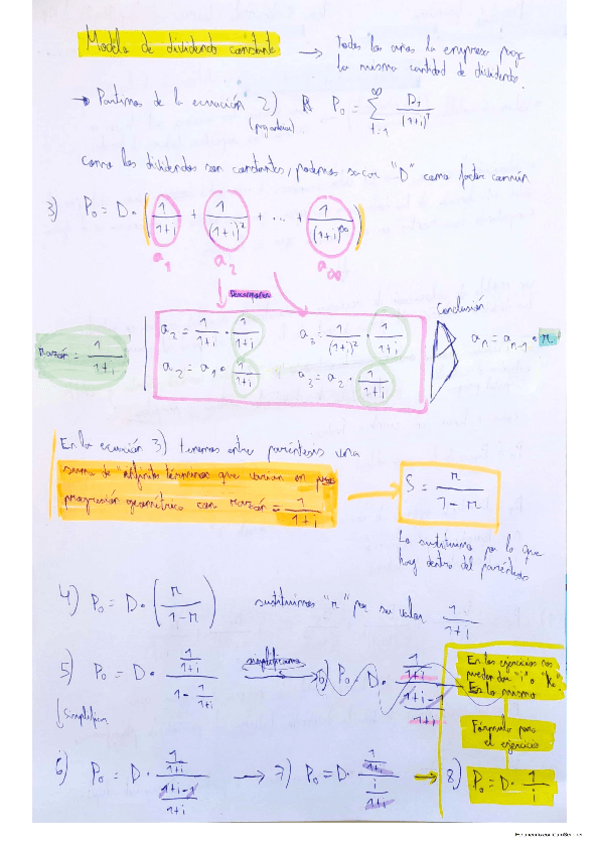 Modelo de dividendo constante → Todos los años la empresa paga
la misma cantidad de dividendo.
→ Partimos de la ecuación 2) P₀ = ∑ t=1 ∞ D₁/(1+i)ᵗ
Como los dividendos son constantes, podemos sacar "D" como factor común
3) P₀ = D · ( 1/(1+i) + 1/(1+i)² + ... + 1/(1+i)^∞ )
a₁ a₂ a∞
Conclusión
razón = 1/(1+i)
a₂ = 1/(1+i) · 1/(1+i) a₃ = 1/(1+i)² · 1/(1+i)
a₂ = a₁ · 1/(1+i) a₃ = a₂ · 1/(1+i)
aₙ = aₙ₋₁ · r
En la ecuación 3) tenemos entre paréntesis una
suma de infinitos términos que varían en
progresión geométrica con razón = 1/(1+i)
S = r/(1-r)
Lo sustituimos por lo que
hay dentro del paréntesis
4) P₀ = D · ( r/(1-r) ) sustituimos "r" por su valor 1/(1+i)
5) P₀ = D · (1/(1+i))/(1 - 1/(1+i)) simplificamos 6) P₀ D · (1/(1+i))/((1+i-1)/(1+i))
↓ Simplificar
En los ejercicios nos
pueden dar "i" o "k".
Es lo mismo
Fórmula para
el ejercicio
6) P₀ = D · (1/(1+i))/((1+i-1)/(1+i)) → 7) P₀ = D · (1/(1+i))/(i/(1+i)) → 8) P₀ = D · 1/i